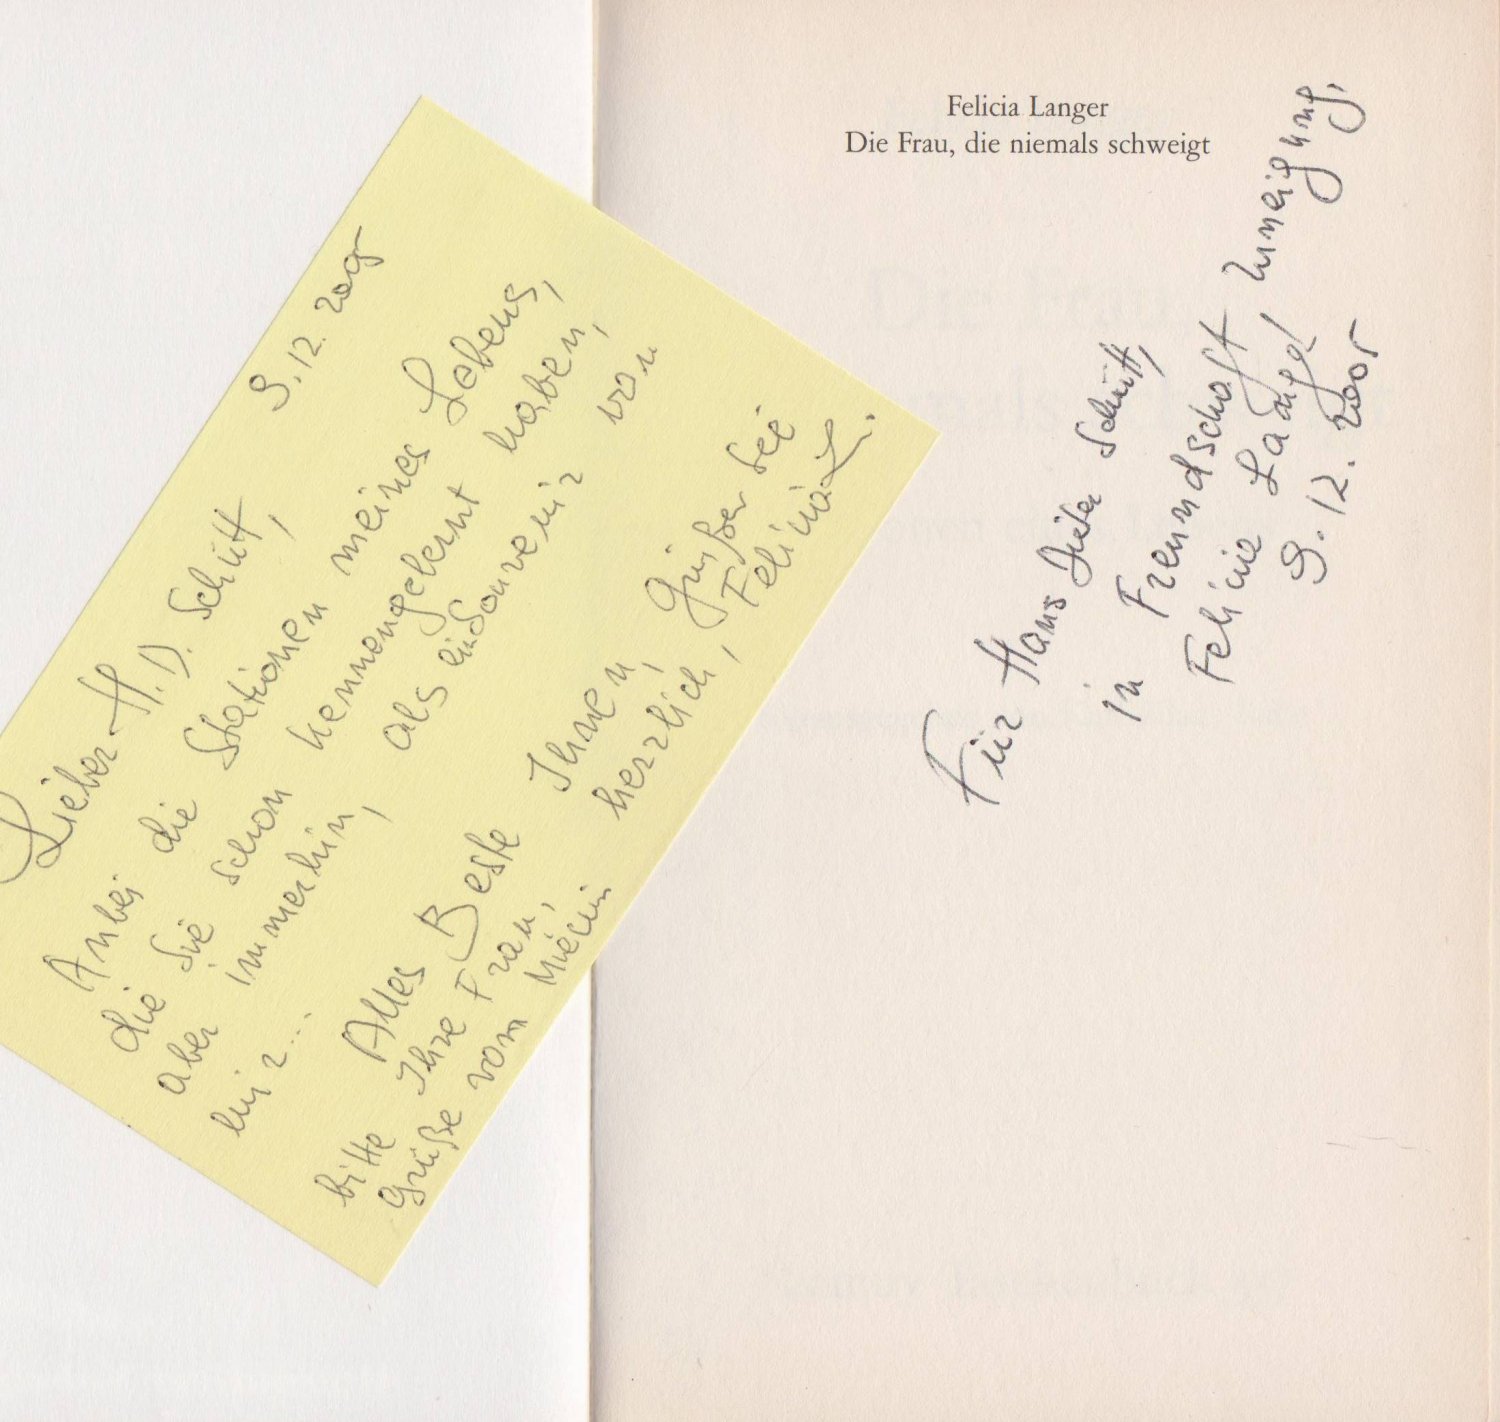 9.12.2005
Lieber H.D. Schütt,
Anbei die Stationen meines Lebens,
die Sie schon kennengelernt haben,
aber immerhin, als ein Souvenir von
mir...
Alles Beste Ihnen,
bitte Ihre Frau, herzlich, Grüße Sie
Grüße vom Mieciu Felicia L.
Felicia Langer
Die Frau, die niemals schweigt
Für Hans Dieter Schütt,
in Freundschaft, Zuneigung,
Felicia Langer
9.12.2005